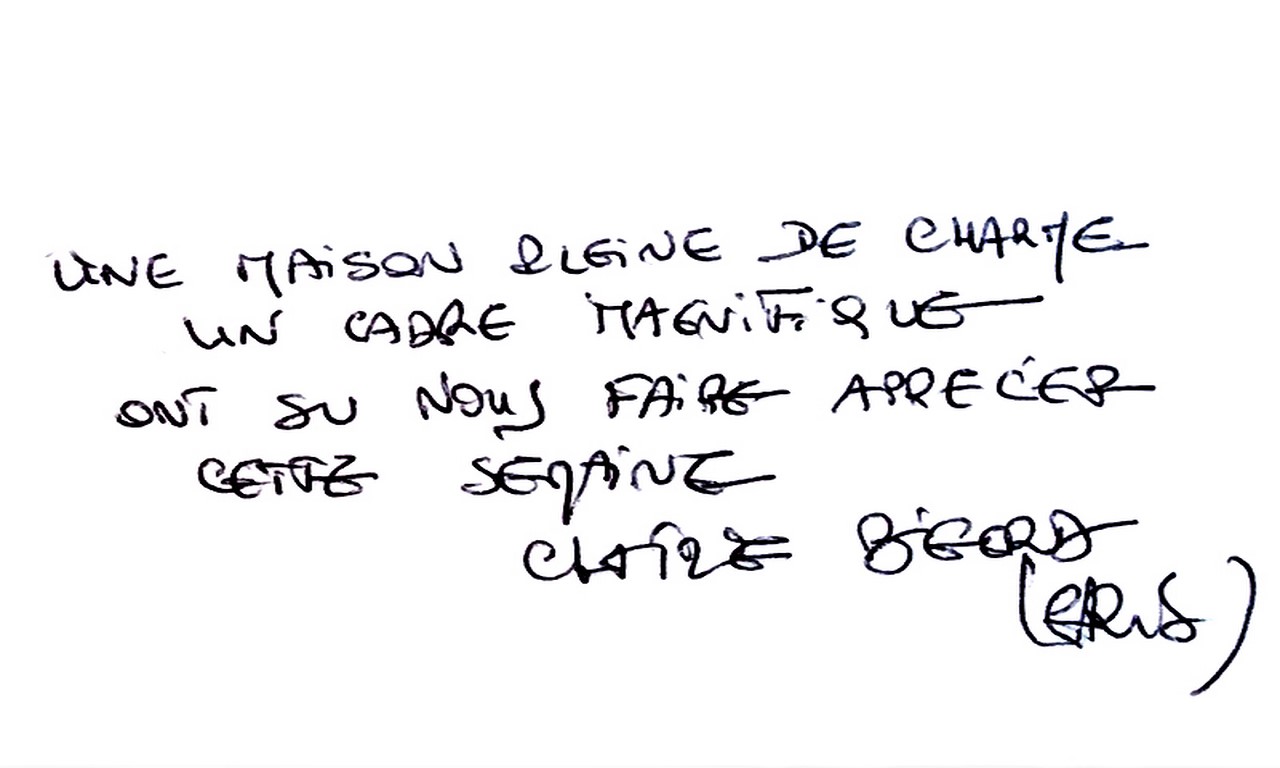 UNE MAISON PLEINE DE CHARME
UN CADRE MAGNIFIQUE
ONT SU NOUS FAIRE APPRECIER
CETTE SEMAINE
CLAIRE
(PARIS)